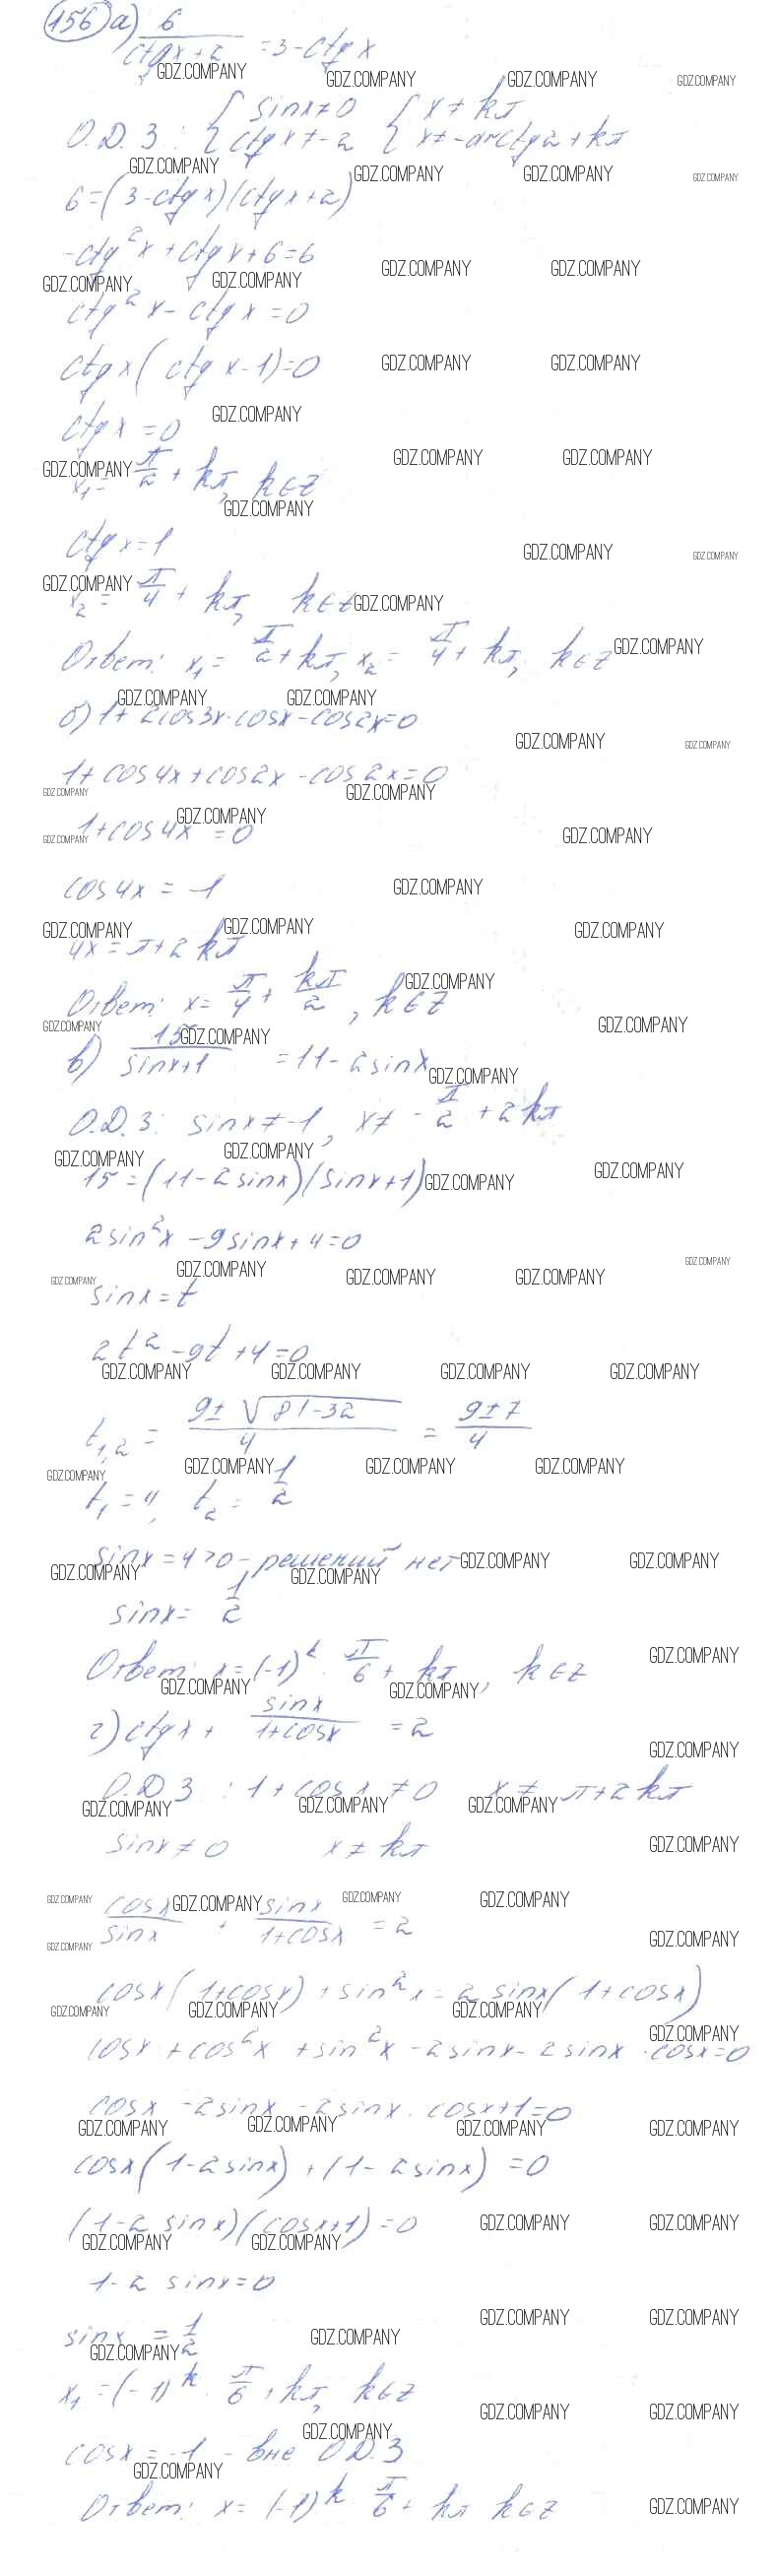 156 а) 6/(ctgx+2) = 3-ctgx
О.Д.З: { sinx≠0 { x≠kπ
{ ctgx≠-2 { x≠-arcctg2+kπ
6=(3-ctgx)(ctgx+2)
-ctg²x+ctgx+6=6
ctg²x-ctgx=0
ctgx(ctgx-1)=0
ctgx=0
x₁=π/2+kπ, k∈Z
ctgx=1
x₂=π/4+kπ, k∈Z
Ответ: x₁=π/2+kπ, x₂=π/4+kπ, k∈Z
б) 1+2cos3x·cosx-cos2x=0
1+cos4x+cos2x-cos2x=0
1+cos4x=0
cos4x=-1
4x=π+2kπ
Ответ: x=π/4+kπ/2, k∈Z
в) 15/(sinx+1) =11-2sinx
О.Д.З: sinx≠-1, x≠-π/2+2kπ
15=(11-2sinx)(sinx+1)
2sin²x-9sinx+4=0
sinx=t
2t²-9t+4=0
t₁,₂=(9±√81-32)/4=(9±7)/4
t₁=4, t₂=1/2
sinx=4>0-решений нет
sinx=1/2
Ответ: x=(-1)ᵏ·π/6+kπ, k∈Z
г) ctgx+sinx/(1+cosx)=2
О.Д.З: 1+cosx≠0 x≠π+2kπ
sinx≠0 x≠kπ
cosx/sinx+sinx/(1+cosx)=2
cosx(1+cosx)+sin²x=2sinx(1+cosx)
cosx+cos²x+sin²x-2sinx-2sinx·cosx=0
cosx-2sinx-2sinx·cosx+1=0
cosx(1-2sinx)+(1-2sinx)=0
(1-2sinx)(cosx+1)=0
1-2sinx=0
sinx=1/2
x₁=(-1)ᵏ·π/6+kπ, k∈Z
cosx=-1-вне О.Д.З
Ответ: x=(-1)ᵏ·π/6+kπ k∈Z
GDZ.COMPANY